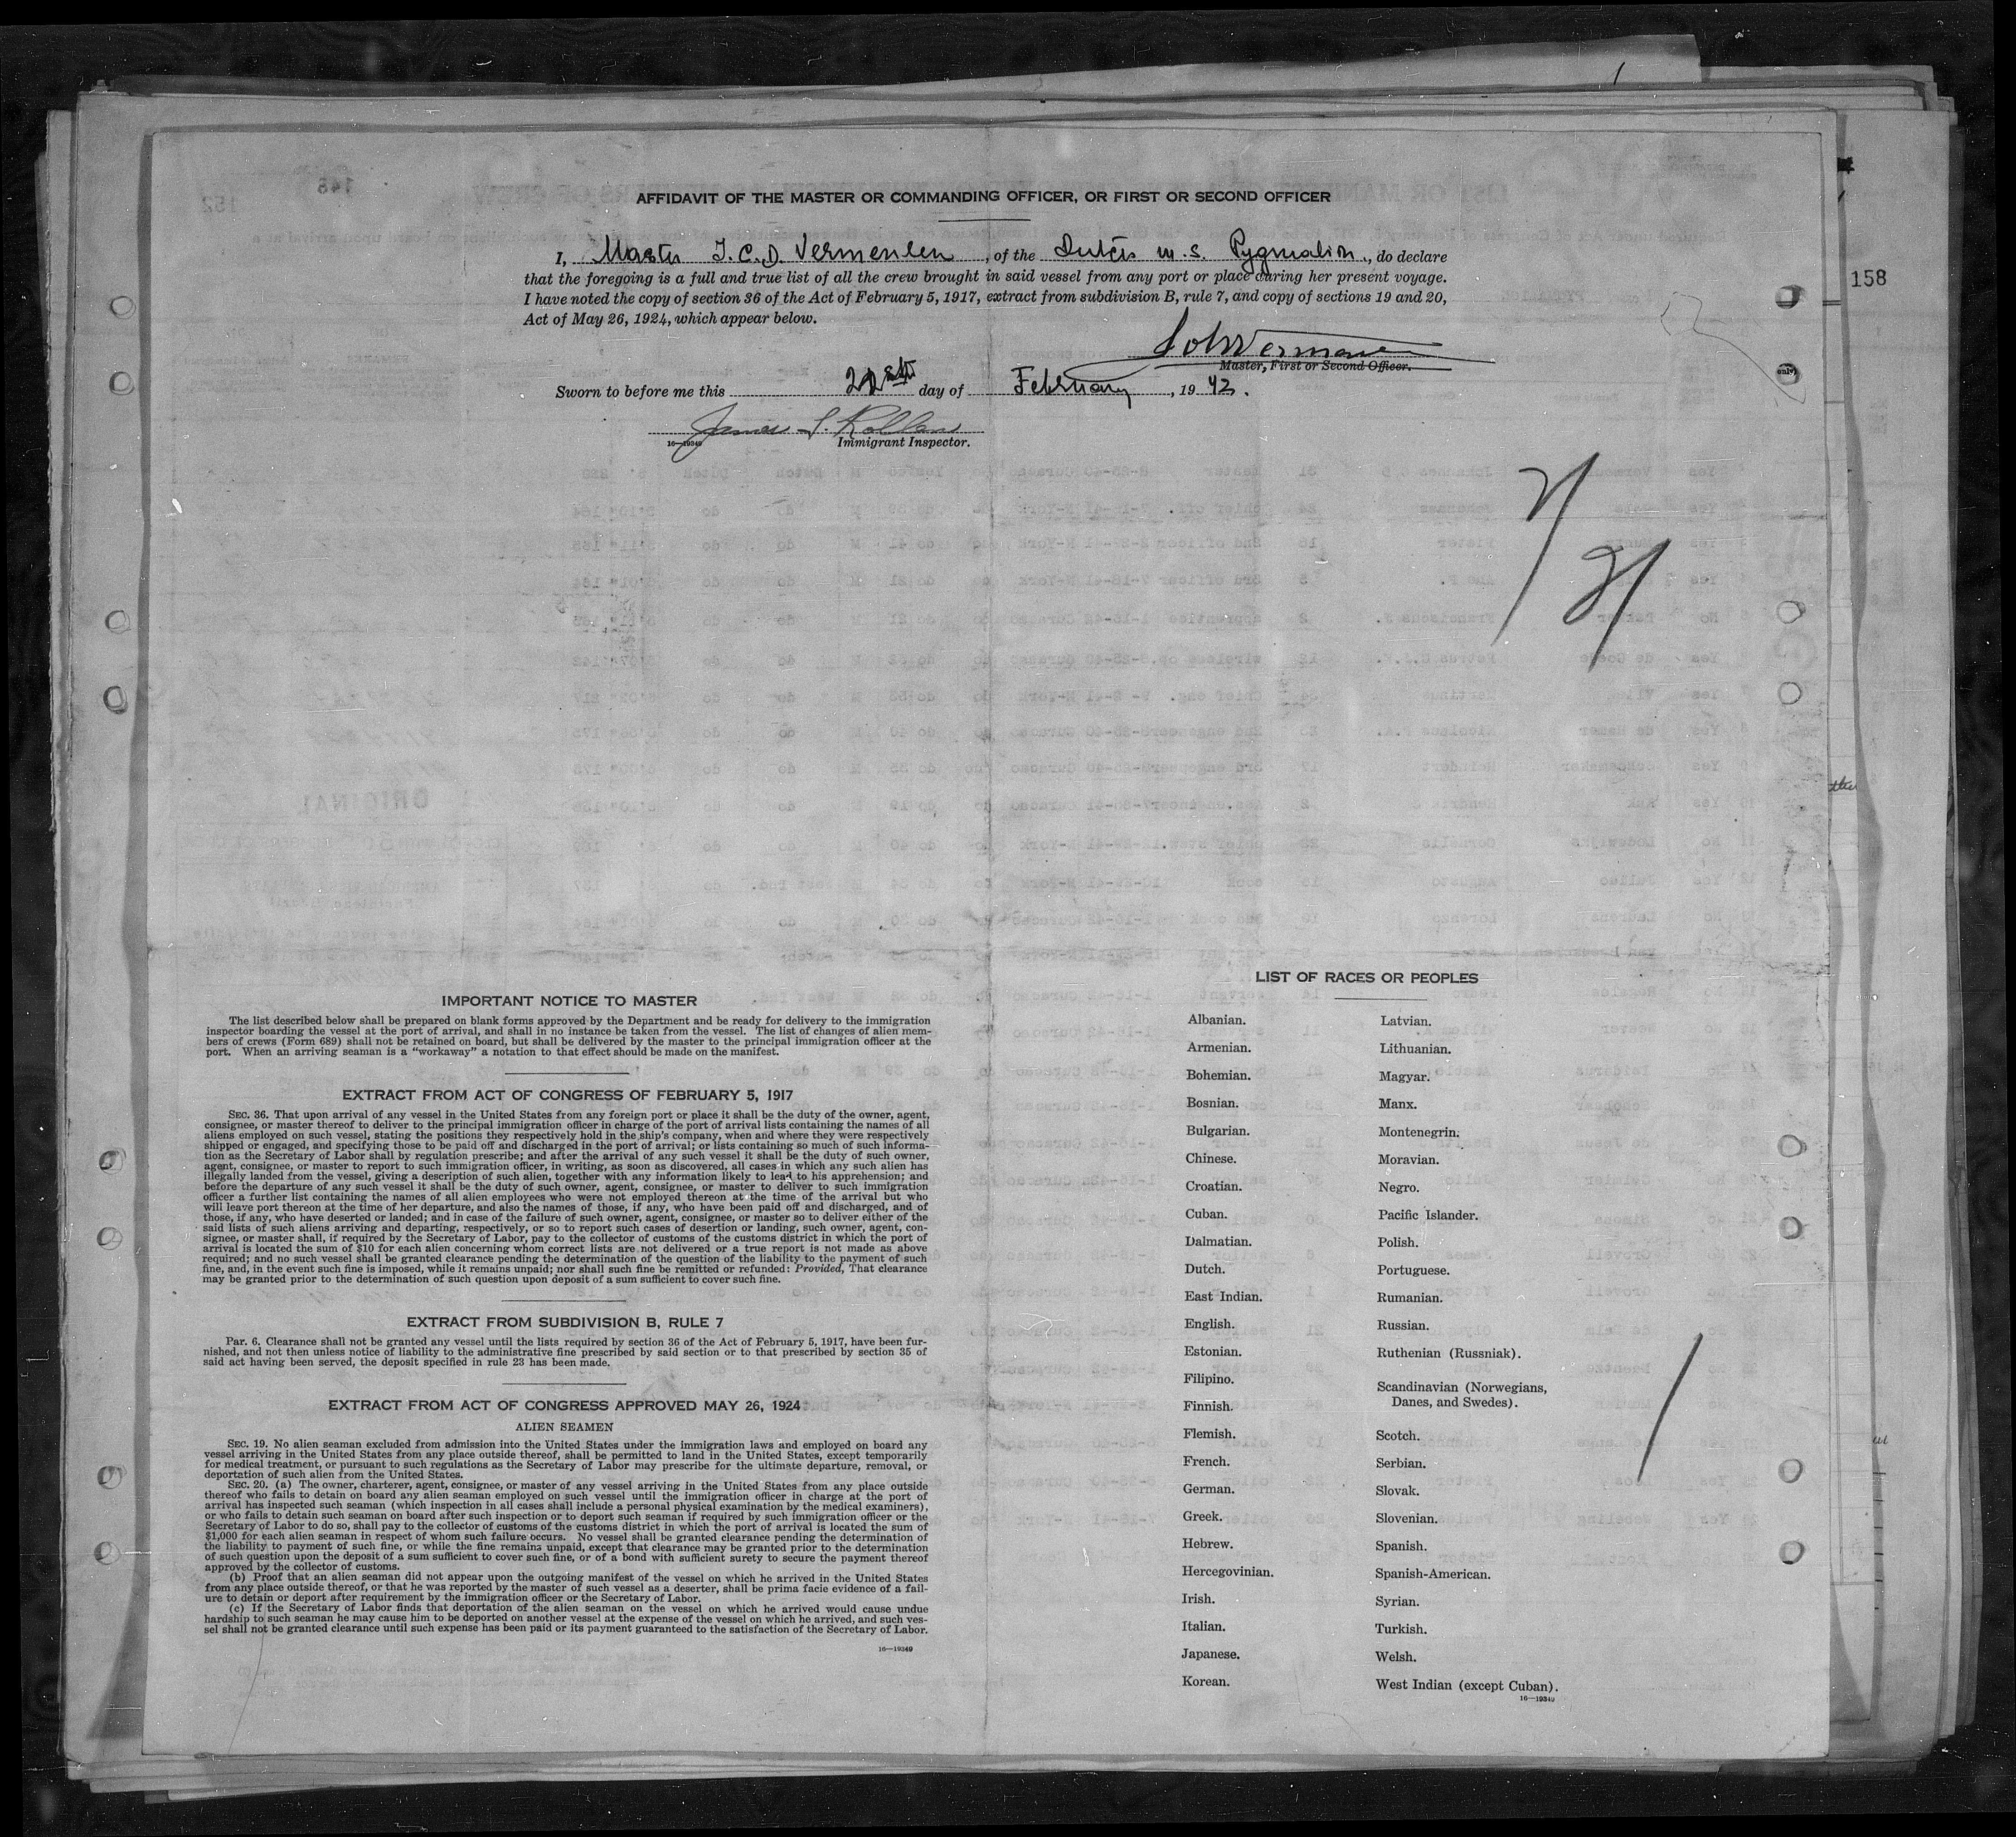 AFFIDAVIT OF THE MASTER OR COMMANDING OFFICER, OR FIRST OR SECOND OFFICER
I, Master J.C.D. Vermeulen, of the Dutch m.s. Pygmalion, do declare
that the foregoing is a full and true list of all the crew brought in said vessel from any port or place during her present voyage.
I have noted the copy of section 36 of the Act of February 5, 1917, extract from subdivision B, rule 7, and copy of sections 19 and 20,
Act of May 26, 1924, which appear below.
Master, First or Second Officer.
Sworn to before me this day of February, 1942.
James
16—19349 Immigrant Inspector.
158
only)
IMPORTANT NOTICE TO MASTER
The list described below shall be prepared on blank forms approved by the Department and be ready for delivery to the immigration
inspector boarding the vessel at the port of arrival, and shall in no instance be taken from the vessel. The list of changes of alien mem-
bers of crews (Form 689) shall not be retained on board, but shall be delivered by the master to the principal immigration officer at the
port. When an arriving seaman is a "workaway" a notation to that effect should be made on the manifest.
EXTRACT FROM ACT OF CONGRESS OF FEBRUARY 5, 1917
SEC. 36. That upon arrival of any vessel in the United States from any foreign port or place it shall be the duty of the owner, agent,
consignee, or master thereof to deliver to the principal immigration officer in charge of the port of arrival lists containing the names of all
aliens employed on such vessel, stating the positions they respectively hold in the ship's company, when and where they were respectively
shipped or engaged, and specifying those to be paid off and discharged in the port of arrival; or lists containing so much of such informa-
tion as the Secretary of Labor shall by regulation prescribe; and after the arrival of any such vessel it shall be the duty of such owner,
agent, consignee, or master to report to such immigration officer, in writing, as soon as discovered, all cases in which any such alien has
illegally landed from the vessel, giving a description of such alien, together with any information likely to lead to his apprehension; and
before the departure of any such vessel it shall be the duty of such owner, agent, consignee, or master to deliver to such immigration
officer a further list containing the names of all alien employees who were not employed thereon at the time of the arrival but who
will leave port thereon at the time of her departure, and also the names of those, if any, who have been paid off and discharged, and of
those, if any, who have deserted or landed; and in case of the failure of such owner, agent, consignee, or master so to deliver either of the
said lists of such aliens arriving and departing, respectively, or so to report such cases of desertion or landing, such owner, agent, con-
signee, or master shall, if required by the Secretary of Labor, pay to the collector of customs of the customs district in which the port of
arrival is located the sum of $10 for each alien concerning whom correct lists are not delivered or a true report is not made as above
required; and no such vessel shall be granted clearance pending the determination of the question of the liability to the payment of such
fine, and, in the event such fine is imposed, while it remains unpaid; nor shall such fine be remitted or refunded: Provided, That clearance
may be granted prior to the determination of such question upon deposit of a sum sufficient to cover such fine.
EXTRACT FROM SUBDIVISION B, RULE 7
Par. 6. Clearance shall not be granted any vessel until the lists required by section 36 of the Act of February 5, 1917, have been fur-
nished, and not then unless notice of liability to the administrative fine prescribed by said section or to that prescribed by section 35 of
said act having been served, the deposit specified in rule 23 has been made.
EXTRACT FROM ACT OF CONGRESS APPROVED MAY 26, 1924
ALIEN SEAMEN
SEC. 19. No alien seaman excluded from admission into the United States under the immigration laws and employed on board any
vessel arriving in the United States from any place outside thereof, shall be permitted to land in the United States, except temporarily
for medical treatment, or pursuant to such regulations as the Secretary of Labor may prescribe for the ultimate departure, removal, or
deportation of such alien from the United States.
SEC. 20. (a) The owner, charterer, agent, consignee, or master of any vessel arriving in the United States from any place outside
thereof who fails to detain on board any alien seaman employed on such vessel until the immigration officer in charge at the port of
arrival has inspected such seaman (which inspection in all cases shall include a personal physical examination by the medical examiners),
or who fails to detain such seaman on board after such inspection or to deport such seaman if required by such immigration officer or the
Secretary of Labor to do so, shall pay to the collector of customs of the customs district in which the port of arrival is located the sum of
$1,000 for each alien seaman in respect of whom such failure occurs. No vessel shall be granted clearance pending the determination of
the liability to payment of such fine, or while the fine remains unpaid, except that clearance may be granted prior to the determination
of such question upon the deposit of a sum sufficient to cover such fine, or of a bond with sufficient surety to secure the payment thereof
approved by the collector of customs.
(b) Proof that an alien seaman did not appear upon the outgoing manifest of the vessel on which he arrived in the United States
from any place outside thereof, or that he was reported by the master of such vessel as a deserter, shall be prima facie evidence of a fail-
ure to detain or deport after requirement by the immigration officer or the Secretary of Labor.
(c) If the Secretary of Labor finds that deportation of the alien seaman on the vessel on which he arrived would cause undue
hardship to such seaman he may cause him to be deported on another vessel at the expense of the vessel on which he arrived, and such ves-
sel shall not be granted clearance until such expense has been paid or its payment guaranteed to the satisfaction of the Secretary of Labor.
16—19349
LIST OF RACES OR PEOPLES
Albanian.
Armenian.
Bohemian.
Bosnian.
Bulgarian.
Chinese.
Croatian.
Cuban.
Dalmatian.
Dutch.
East Indian.
English.
Estonian.
Filipino.
Finnish.
Flemish.
French.
German.
Greek.
Hebrew.
Hercegovinian.
Irish.
Italian.
Japanese.
Korean.
Latvian.
Lithuanian.
Magyar.
Manx.
Montenegrin.
Moravian.
Negro.
Pacific Islander.
Polish.
Portuguese.
Rumanian.
Russian.
Ruthenian (Russniak).
Scandinavian (Norwegians,
Danes, and Swedes).
Scotch.
Serbian.
Slovak.
Slovenian.
Spanish.
Spanish-American.
Syrian.
Turkish.
Welsh.
West Indian (except Cuban).
16—19349